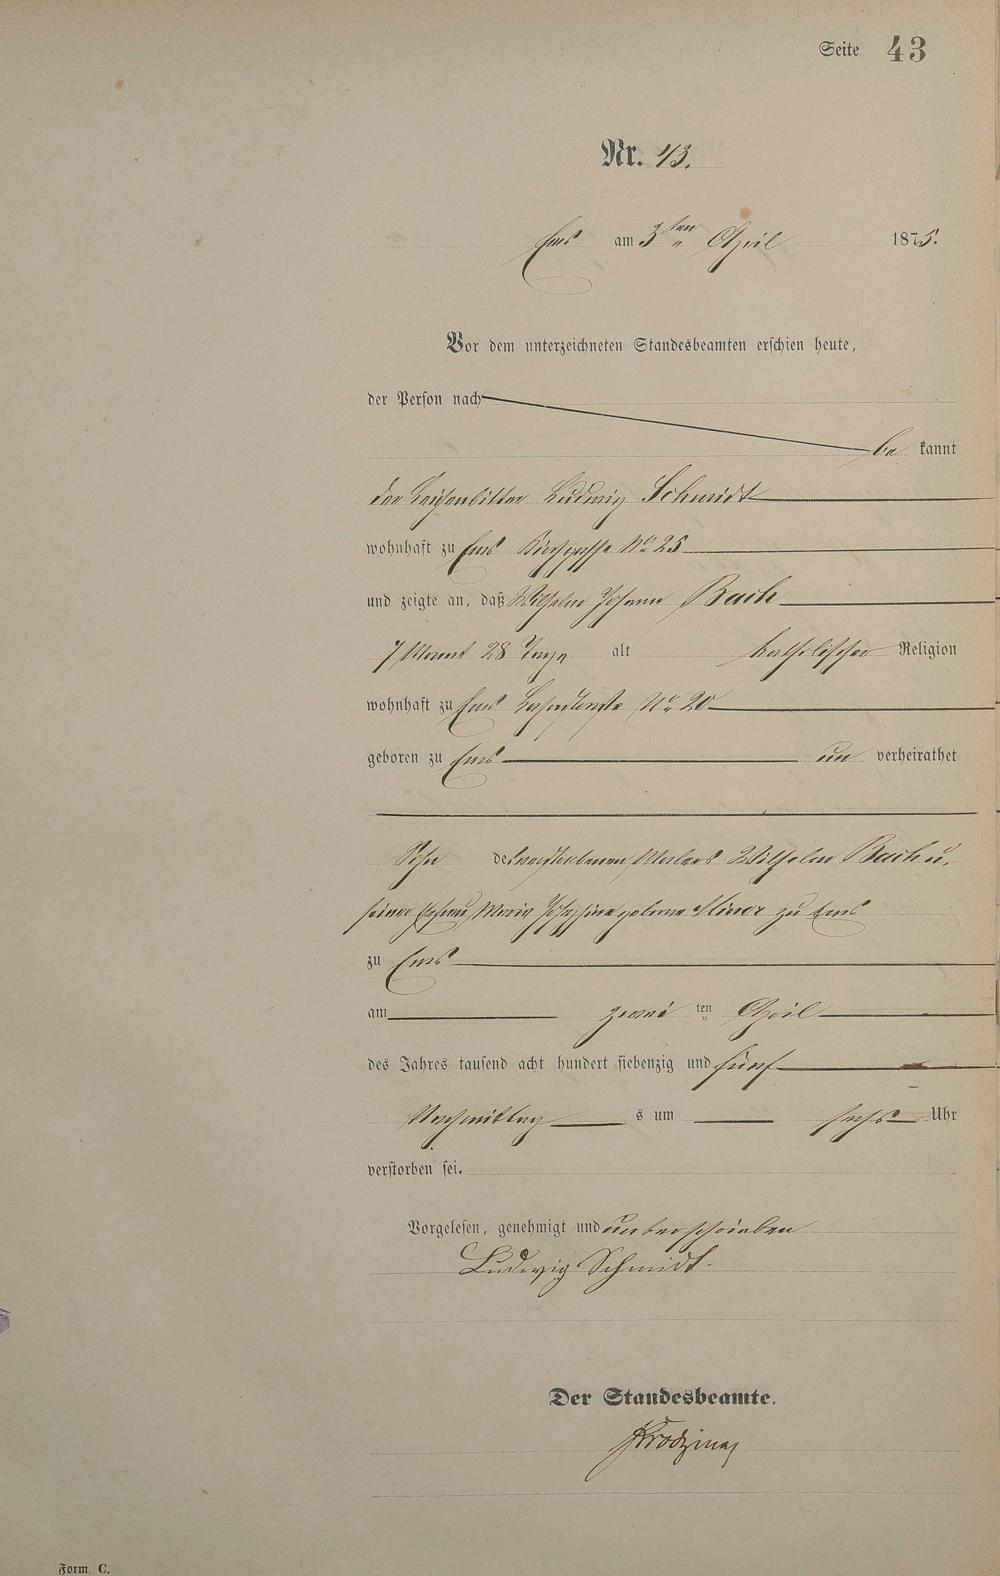 Seite 43
Nr. 43.
Ems am 3ten April 1875.
Vor dem unterzeichneten Standesbeamten erschien heute,
der Person nach
be kannt
der Leichenbitter Ludwig Schmidt
wohnhaft zu Ems Kirchgasse No 25
und zeigte an, daß Wilhelm Johann Bach
7 Monat 28 Tage alt katholischer Religion
wohnhaft zu Ems No 20
geboren zu Ems un verheirathet
Sohn des verstorbenen Malers Wilhelm Bach u.
seiner Ehefrau Maria Josephina geborne zu Ems
zu Ems
am zwei ten April
des Jahres tausend acht hundert siebenzig und fünf
Nachmittag s um sechs Uhr
verstorben sei.
Vorgelesen, genehmigt und unterschrieben
Ludwig Schmidt.
Der Standesbeamte.
Form. C.